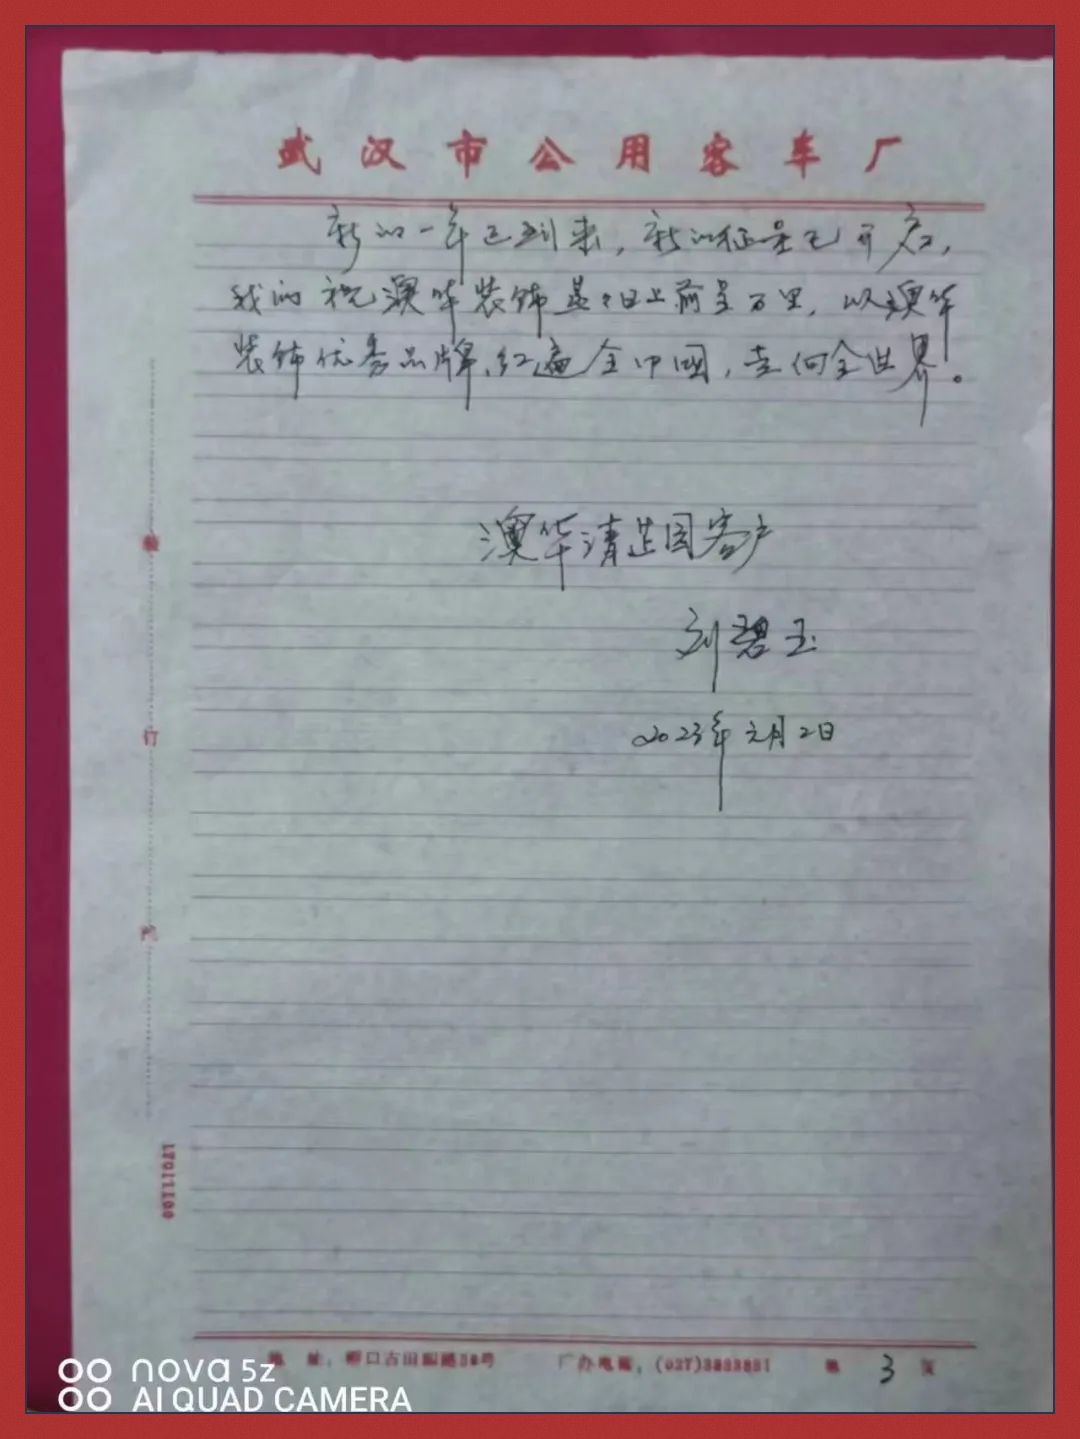 武汉市公用客车厂
新的一年已到来，新的征呈已开启，
我的祝澳华装饰蒸々日上前呈万里，以澳华
装饰优秀品牌，红遍全中国，走向全世界。
澳华清芷园客户
刘碧玉
2023年元月2日
装
订
0011101
地 址：桥口古田
厂办电话：(027)
第 3 页
nova 5z
AI QUAD CAMERA